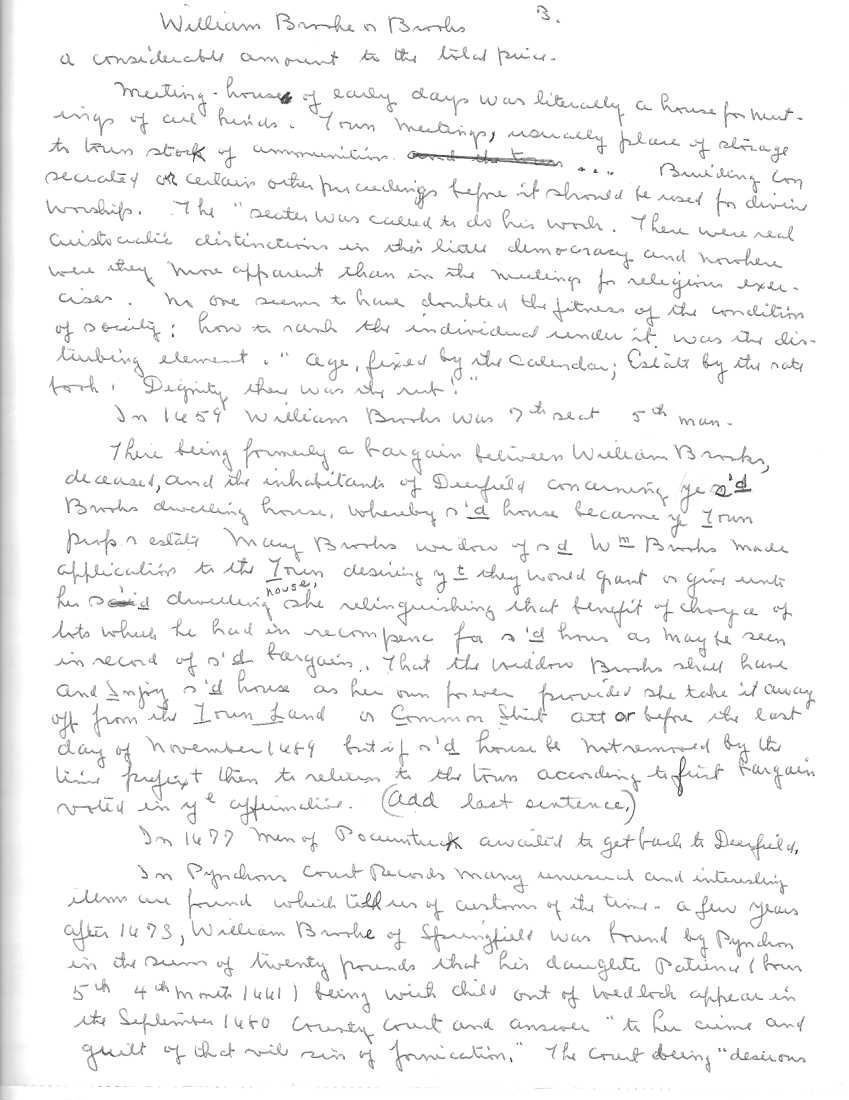 William Brooke or Brooks
3.
a considerable amount to the total price.
Meeting-house of early days was literally a house for meet-
ings of all kinds. Town Meetings, usually place of storage
to town stock of ammunition. and the town .... Building con
secrated or certain other proceedings before it should be used for divine
worship. The "seater was called to do his work. There were real
aristocratic distinctions in this little democracy and nowhere
were they more apparent than in the meetings for religious exer-
cises. No one seems to have doubted the fitness of the condition
of society; how to rank the individual under it was the dis-
turbing element. " Age, fixed by the Calendar; Estate by the rate
book. Dignity there was the rub!"
In 1659 William Brooks was 7th seat 5th man.
There being formerly a bargain between William Brooks,
deceased, and the inhabitants of Deerfield concerning ye s'd
Brooks dwelling house, whereby s'd house became ye Town
prop r estate Mary Brooks widow of sd Wm Brooks made
application to the Town desiring yt they would grant or give unto
her said dwelling house, she relinguishing that benefit of choyce of
lots which he had in recompenc for s'd hous as may be seen
in record of s'd bargain. That the widdow Brooks shall have
and Injoy s'd house as her own forever provided she take it away
off from the Town Land or Common Shut att or before the last
day of November 1689 but if s'd house be not removed by the
time prefixt then to return to the town according to first bargain
voted in ye affirmative. (Add last sentence.)
In 1677 Men of Pocumtuck awaited to get back to Deerfield.
In Pynchons Court Records many unusual and interesting
items are found which tell us of customs of the time - a few years
after 1673, William Brooke of Springfield was bound by Pynchon
in the sum of twenty pounds that his daughter Patience (born
5th 4th month 1661) being with child out of wedlock appear in
the September 1680 County Court and answer "to her crime and
guilt of that vile sin of fornication." The Court being "desirous